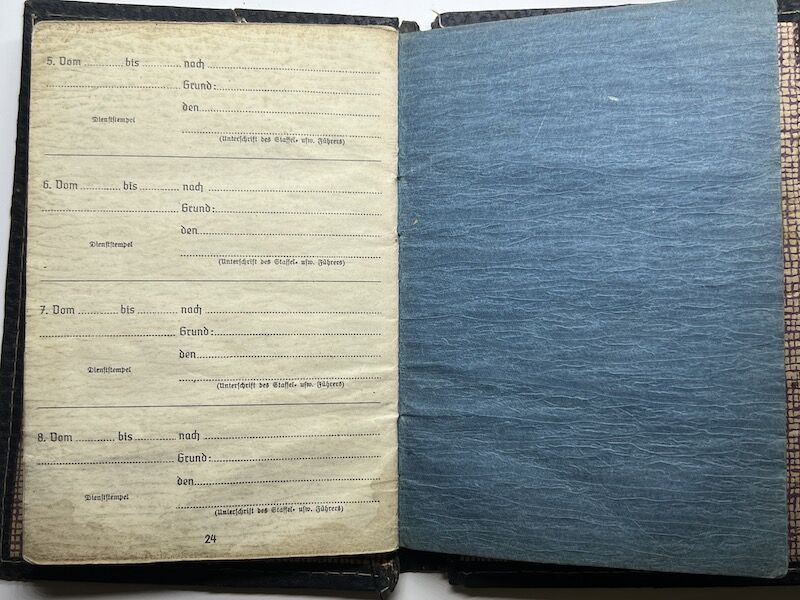 5. Vom ............ bis ............ nach ............
............ Grund: ............
den ............
Dienststempel
(Unterschrift des Staffel- usw. Führers)
6. Vom ............ bis ............ nach ............
............ Grund: ............
den ............
Dienststempel
(Unterschrift des Staffel- usw. Führers)
7. Vom ............ bis ............ nach ............
............ Grund: ............
den ............
Dienststempel
(Unterschrift des Staffel- usw. Führers)
8. Vom ............ bis ............ nach ............
............ Grund: ............
den ............
Dienststempel
(Unterschrift des Staffel- usw. Führers)
24